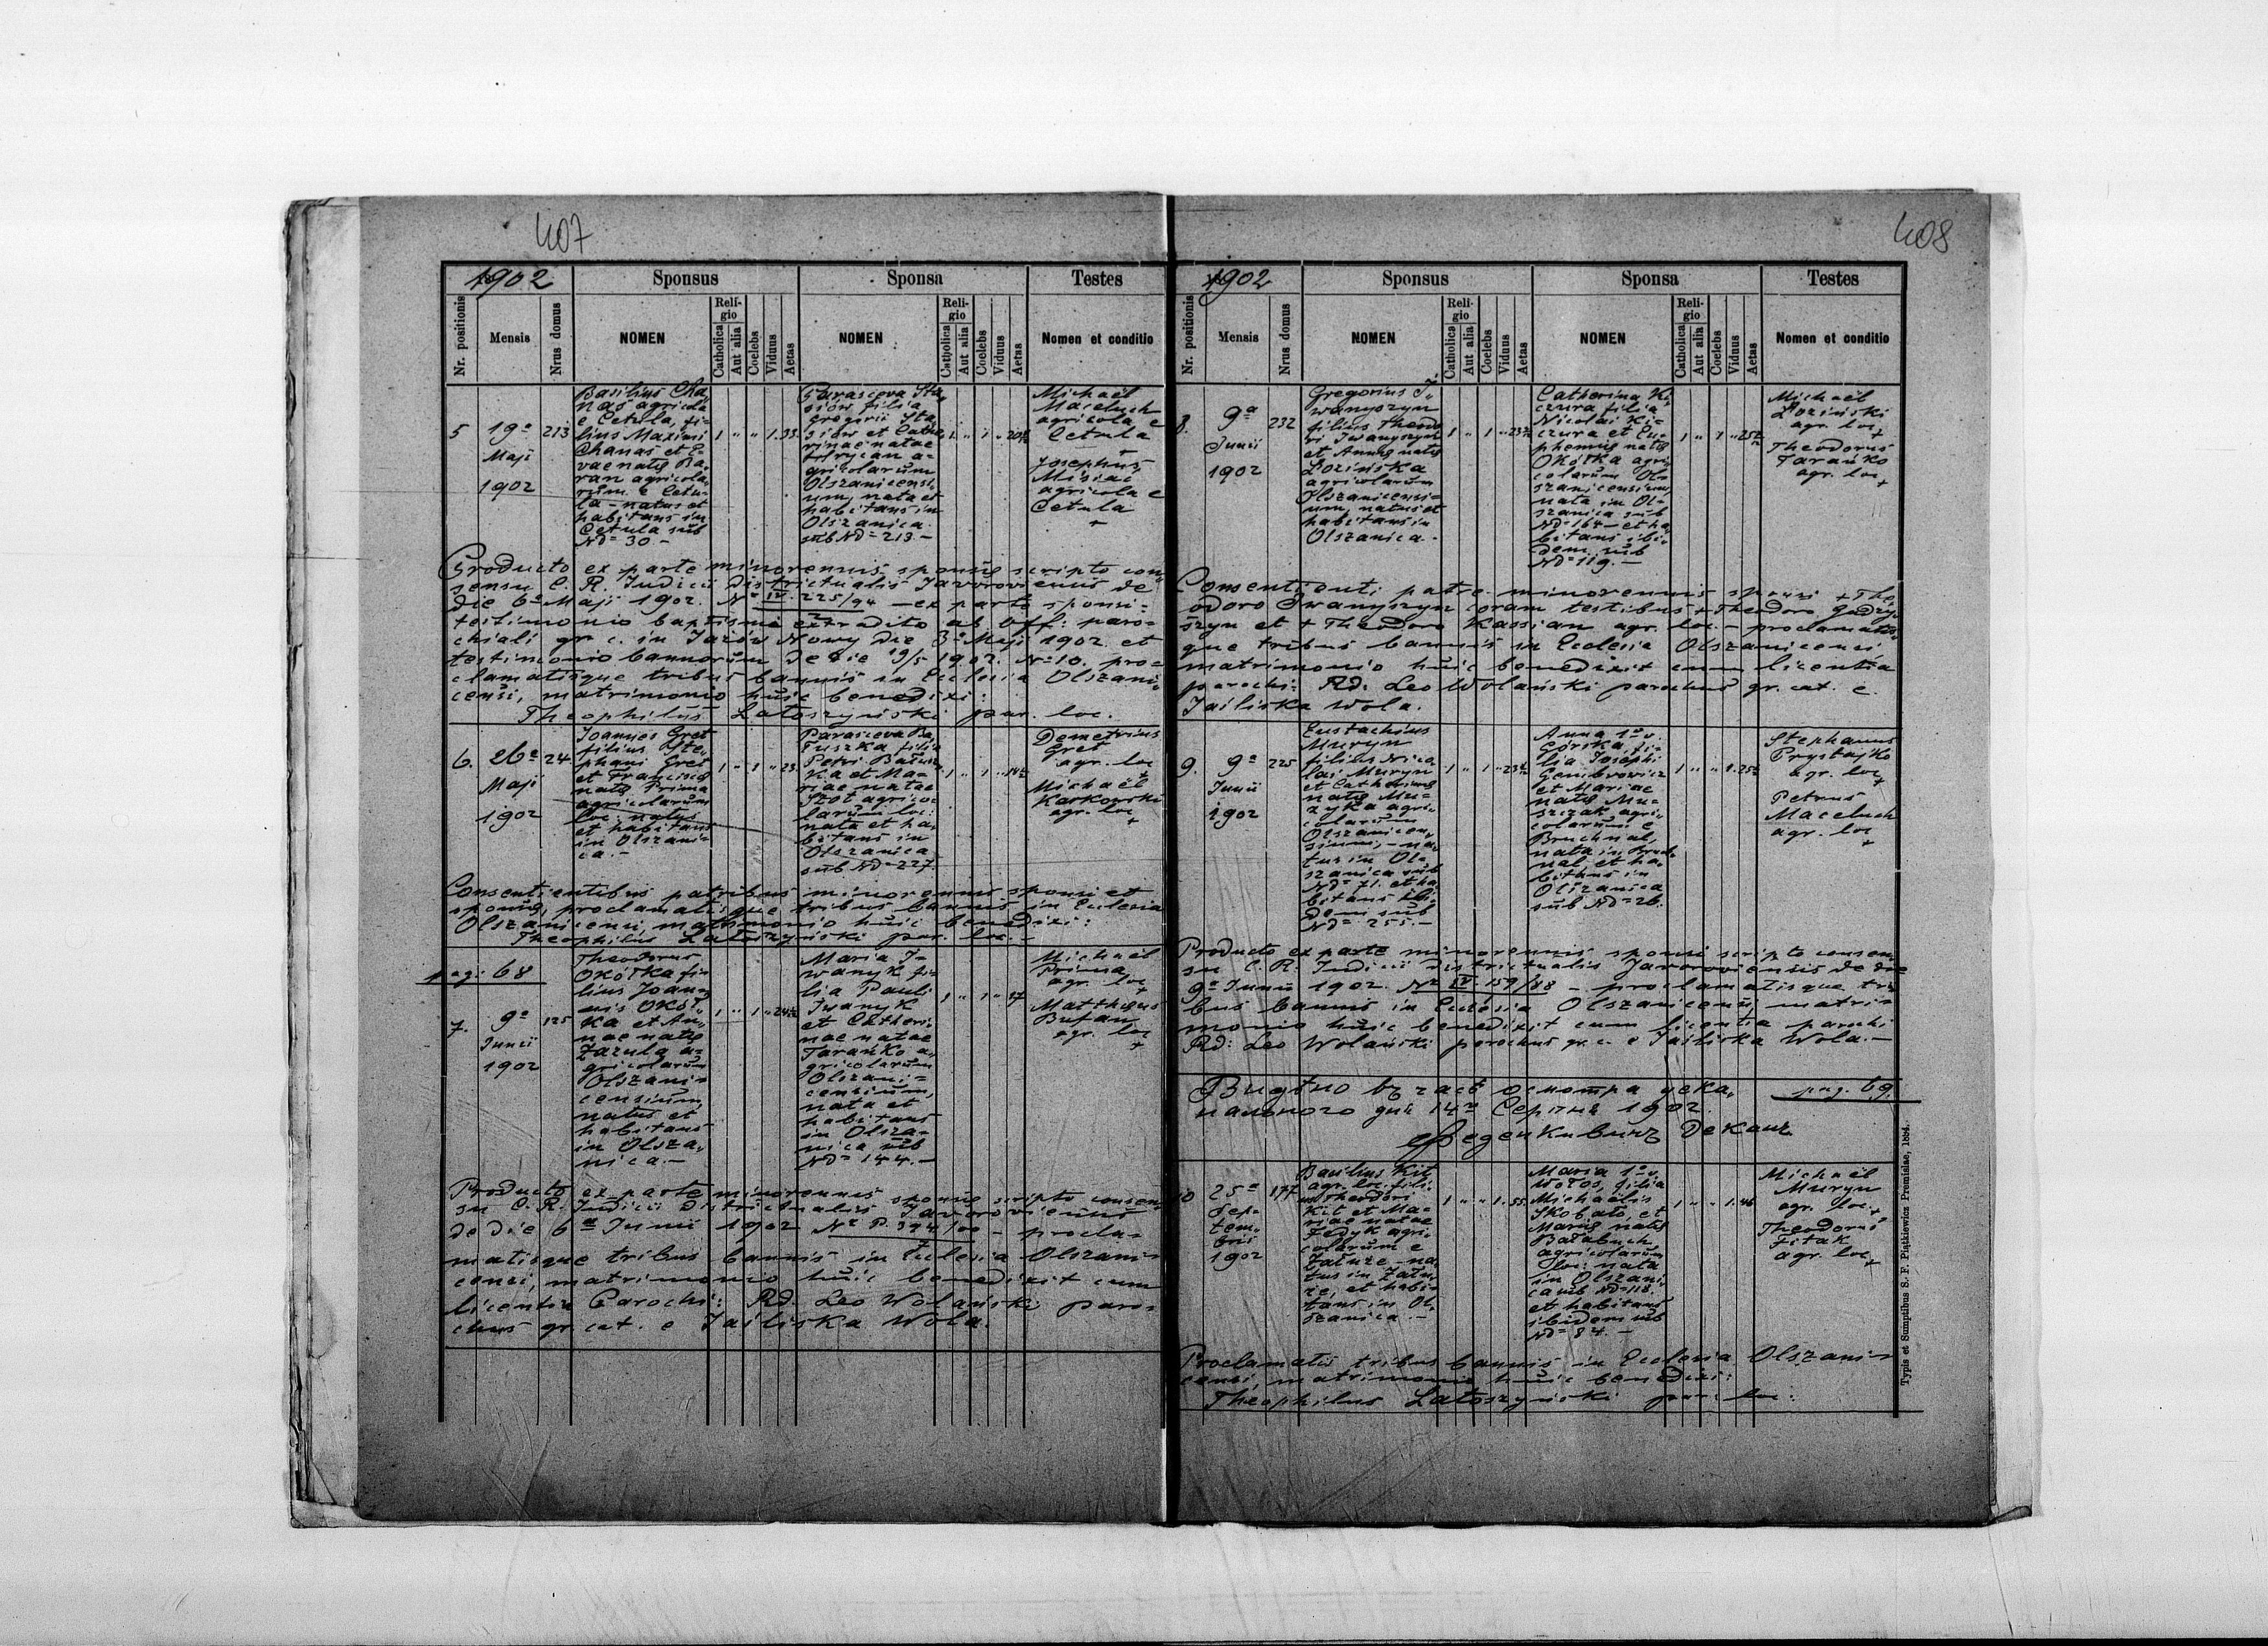 407
1902 Sponsus Sponsa Testes
Nr. positionis Mensis Nrus domus NOMEN Religio Catholica Aut alia Coelebs Viduus Aetas NOMEN Religio Catholica Aut alia Coelebs Viduus Aetas Nomen et conditio
5
19a
Maji
1902
213
Basilius Cha„
nas agricola
e Cetula, fi„
lius Maximi
Chanas et E„
vae natæ Ba„
ran agricola„
rum e Cetu„
la – natus et
habitans in
Cetula sub
Nd= 30.–
1 „ „ 1. 33.
Parasceva Sta„
siów filia
Gregorii Sta„
siów et Catha
rinae natae
a„
gricolarum
Olszanicensi„
um, nata et
habitans in
Olszanica
sub Nd= 213.–
1 „ 1 „
Michaël
Maceluch
agricola e
Cetula
+
Josephus
Misiac
agricola e
Cetula
+
Producto ex parte minorennis sponsæ scripto con„
sensu C. R. Judicii districtualis Javoroviensis de
die 6a Maji 1902. Nr IV. 225/94 – ex parte sponsi =
testimonio baptismi extradito ab Off: paro=
chiali gr. c. in Jazów Nowy die 3a Maji 1902 et
testimonio bannorum de die 19/5 1902. N=10. pro=
clamatisque tribus bannis in Ecclesia Olszani„
censi, matrimonio huic benedixi:
Theophilus Latoszyński par. loc.
6.
26a
Maji
1902
24
Joannes Gret
filius Ste„
phani Gret
et Franciscæ
natæ Prima
agricolarum
loc. natus
et habitans
in Olszani„
ca.–
1 „ 1 „ 23.
Parasceva Ba„
tuszka filia
Petri Batusz„
ka et Ma„
riae natae
Szot agrico„
larum loc.
nata et ha„
bitans in
Olszanica
sub Nd= 227.
1 „ 1 „
Demetrius
Gret
agr. loc
+
Michaël
Karkowski
agr. loc
+
Consentientibus patribus minorennis sponsi et
sponsæ, proclamatisque tribus bannis in Ecclesia
Olszanicensi, matrimonio huic benedixi:
Theophilus Latoszyński par. loc.–
pag: 68
7.
9a
Junii
1902
125
Theodorus
Okółka fi„
lius Joan„
nis Okół„
ka et An„
nae natæ
Zazula a=
gricolarum
Olszani=
censium,
natus et
habitans
in Olsza„
nica.–
1 „ 1 „
Maria I„
wanyk fi„
lia Pauli
Iwanyk
et Cathari„
nae natae
Tarańko a„
gricolarum
Olszani=
censium,
nata et
habitans
in Olsza=
nica sub
Nd= 144.–
1 „ 1 „ 17
Michaël
Prima
agr. loc
+
Matthæus
agr. loc
+
Producto ex parte minorennis sponsæ scripto consen„
su C. R. Judicii districtualis Javoroviensis
de die 6a Junii 1902 Nr P. 394/00 – procla=
matisque tribus bannis in Ecclesia Olszani=
censi, matrimonio huic benedixit cum
licentia Parochi: Rd. Leo Wolański paro=
chus gr. cat. e Jaśliska Wola.
408
1902 Sponsus Sponsa Testes
Nr. positionis Mensis Nrus domus NOMEN Religio Catholica Aut alia Coelebs Viduus Aetas NOMEN Religio Catholica Aut alia Coelebs Viduus Aetas Nomen et conditio
8.
9a
Junii
1902
232
Gregorius I„
wanyszyn
filius Theodo
ri Iwanyszyn
et Annæ natæ
Lozińska
agricolarum
Olszanicensi=
um, natus et
habitans in
Olszanica.–
1 „ 1 „
Catharina Ki„
czura filia
Nicolai Ki=
czura et Eu„
phemiæ natæ
Okółka agri„
colarum Ol=
szanicensium,
nata in Ol=
szanica sub
Nd=164– et ha„
bitans ibi„
dem sub
Nd=119.–
1 „ 1 „
Michaël
Loziński
agr. loc
+
Theodorus
Tarańko
agr. loc
+
Consentienti patre minorennis sponsi + The„
odoro Iwanyszyn coram testibus + Theodoro
et + Theodoro Kassian agr. loc. – proclamatis„
que tribus bannis in Ecclesia Olszanicensi
matrimonio huic benedixit cum licentia
parochi: Rd: Leo Wolański parochus gr. cat. e.
Jaśliska Wola.
9.
9a
Junii
1902
225
Eustachius
Muryn
filius Nico„
lai Muryn
et Catharinæ
natæ Mu=
zyka agri„
colarum
Olszanicen„
sium, – na„
tus in Ol=
szanica sub
Nd= 71. et ha
bitans ibi„
dem sub
Nd= 255.–
1 „ 1 „
Anna 1o v.
Górska, fi„
lia Josephi
Gembrowicz
et Mariae
natæ Mu=
szczak agri„
colarum e
Bruchnal,
nata in Bruch„
nal, et ha„
bitans in
Olszanica
sub Nd=26.
1 „ „ 1.
Stephanus
Prystajko
agr. loc
+
Petrus
Maceluch
agr. loc
+
Producto ex parte minorennis sponsi scripto consen„
su C. R. Judicii districtualis Javoroviensis de die
9a Junii 1902. Nr IV. 159/88 – proclamatisque tri„
bus bannis in Ecclesia Olszanicensi, matri=
monio huic benedixit cum licentia parochi
Rd: Leo Wolański parochus gr. c. e Jaśliska Wola.–
Видѣно въ часѣ осмотра дека„
нального дня 14го Серпня 1902.
деканъ
pag. 69.
10
25a
Sep„
tem„
bris
1902
177
Basilius Kit
agr. loc. fili„
us Theodori
Kit et Ma„
riae natae
Fedyk agri„
colarum e
Załuże – na„
tus in Zału„
że, et habi=
tans in Ol„
szanica.–
1 „ „ 1. 55.
Maria 1o v.
Wołos, filia
Michaëlis
Skobało, et
Mariæ natæ
Bałabuch
agricolarum
loc. nata
in Olszani„
ca sub Nd=118.
et habitans
ibidem sub
Nd= 84.–
1 „ „ 1. 46
Michaël
Muryn
agr. loc.
+
Theodorus
Fitak
agr. loc
+
Proclamatis tribus bannis in Ecclesia Olszani=
censi, matrimonio huic benedixi:
Theophilus Latoszyński par: loc:
Typis et Sumptibus S. F. Piątkiewicz Premislae, 1894.